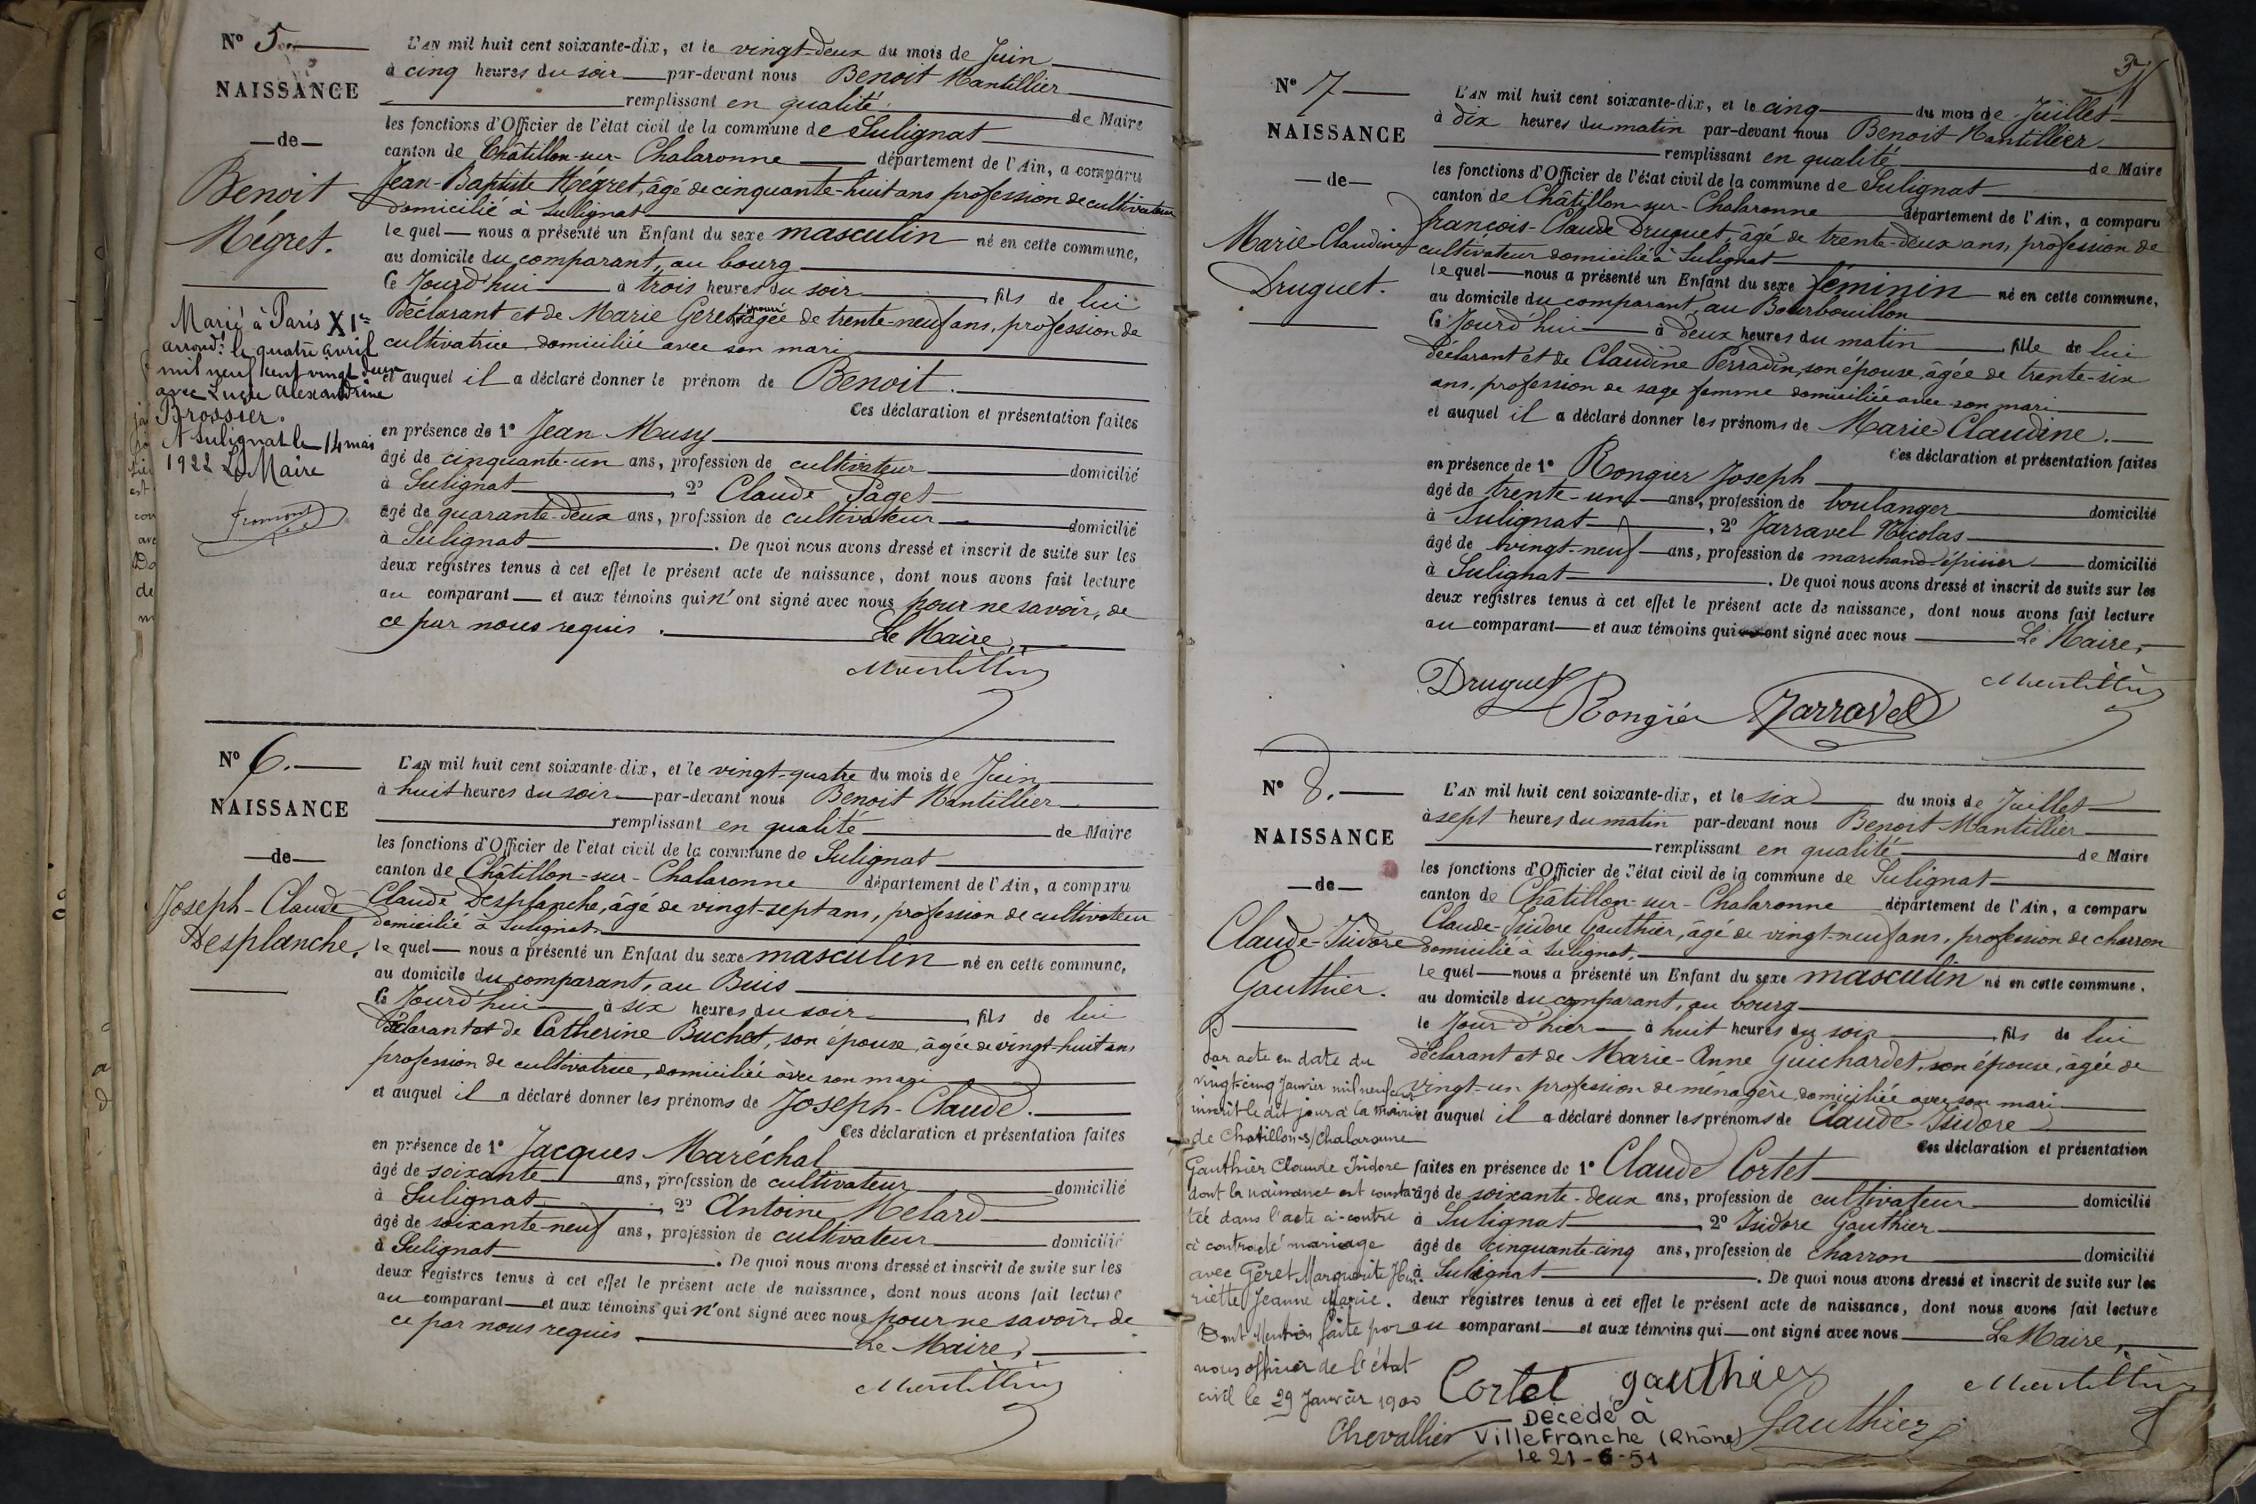 N° 5.
NAISSANCE
—de—
Benoit
Mégret.
Marié à Paris XIe
arrondt le quatre avril
mil neuf cent vingt deux
avec Lucie Alexandrine
Brossier.
A Sulignat le 14 mai
1922 Le Maire
L'AN mil huit cent soixante-dix, et le vingt-deux du mois de Juin
à cinq heures du soir par-devant nous Benoit Mantillier
remplissant en qualité de Maire
les fonctions d'Officier de l'état civil de la commune de Sulignat
canton de Châtillon-sur-Chalaronne département de l'Ain, a comparu
Jean-Baptiste Mégret, âgé de cinquante-huit ans profession de cultivateur
domicilié à Sulignat
le quel nous a présenté un Enfant du sexe masculin né en cette commune,
au domicile du comparant, au bourg
Ce Jourd'hui à trois heures du soir, fils de lui
Déclarant et de Marie Geret, son épouse âgée de trente-neuf ans, profession de
cultivatrice domiciliée avec son mari
et auquel il a déclaré donner le prénom de Benoit.
Ces déclaration et présentation faites
en présence de 1° Jean Musy
âgé de cinquante-un ans, profession de cultivateur domicilié
à Sulignat, 2° Claude Paget
âgé de quarante-deux ans, profession de cultivateur domicilié
à Sulignat. De quoi nous avons dressé et inscrit de suite sur les
deux registres tenus à cet effet le présent acte de naissance, dont nous avons fait lecture
au comparant et aux témoins qui n'ont signé avec nous pour ne savoir, de
ce par nous requis. Le Maire,
Mantillier
N° 6.
NAISSANCE
—de—
Joseph-Claude
Desplanche.
L'AN mil huit cent soixante-dix, et le vingt-quatre du mois de Juin
à huit heures du soir par-devant nous Benoit Mantillier
remplissant en qualité de Maire
les fonctions d'Officier de l'état civil de la commune de Sulignat
canton de Châtillon-sur-Chalaronne département de l'Ain, a comparu
Claude Desplanche, âgé de vingt-sept ans, profession de cultivateur
domicilié à Sulignat
le quel nous a présenté un Enfant du sexe masculin né en cette commune,
au domicile du comparant, au Buis
Ce Jourd'hui à six heures du soir, fils de lui
Déclarant et de Catherine Buchet, son épouse, âgée de vingt-huit ans
profession de cultivatrice, domiciliée avec son mari
et auquel il a déclaré donner les prénoms de Joseph-Claude.
Ces déclaration et présentation faites
en présence de 1° Jacques Maréchal
âgé de soixante ans, profession de cultivateur domicilié
à Sulignat, 2° Antoine Melard
âgé de soixante-neuf ans, profession de cultivateur domicilié
à Sulignat. De quoi nous avons dressé et inscrit de suite sur les
deux registres tenus à cet effet le présent acte de naissance, dont nous avons fait lecture
au comparant et aux témoins qui n'ont signé avec nous pour ne savoir, de
ce par nous requis Le Maire,
Mantillier
N° 7
NAISSANCE
—de—
Marie-Claudine
Druguet.
L'AN mil huit cent soixante-dix, et le cinq du mois de Juillet
à dix heures du matin par-devant nous Benoit Mantillier
remplissant en qualité de Maire
les fonctions d'Officier de l'état civil de la commune de Sulignat
canton de Châtillon-sur-Chalaronne département de l'Ain, a comparu
françois-Claude Druguet, âgé de trente-deux ans, profession de
cultivateur domicilié à Sulignat
le quel nous a présenté un Enfant du sexe féminin né en cette commune,
au domicile du comparant, au Bourbouillon
Ce Jourd'hui à deux heures du matin, fille de lui
déclarant et de Claudine Perradin, son épouse, âgée de trente-six
ans, profession de sage femme domiciliée avec son mari
et auquel il a déclaré donner les prénoms de Marie-Claudine.
Ces déclaration et présentation faites
en présence de 1° Rongier Joseph
âgé de trente-un ans, profession de boulanger domicilié
à Sulignat, 2° Jarravel Nicolas
âgé de vingt-neuf ans, profession de marchand épicier domicilié
à Sulignat. De quoi nous avons dressé et inscrit de suite sur les
deux registres tenus à cet effet le présent acte de naissance, dont nous avons fait lecture
au comparant et aux témoins qui ont signé avec nous Le Maire,
Druguet Rongier Jarravel Mantillier
N° 8.
NAISSANCE
—de—
Claude-Isidore
Gauthier.
Par acte en date du
vingt-cinq Janvier mil neuf cent
inscrit le dit jour à la mairie
de Chatillon-s/Chalaronne
Gauthier Claude Isidore
dont la naissance est consta-
tée dans l'acte ci-contre
a contracté mariage
avec Géret Marguerite Hen-
riette Jeanne Marie.
Dont Mention faite par
nous officier de l'état
civil le 29 Janvier 1900
Chevallier
L'AN mil huit cent soixante-dix, et le six du mois de Juillet
à sept heures du matin par-devant nous Benoit Mantillier
remplissant en qualité de Maire
les fonctions d'Officier de l'état civil de la commune de Sulignat
canton de Châtillon-sur-Chalaronne département de l'Ain, a comparu
Claude-Isidore Gauthier, âgé de vingt-neuf ans, profession de charron
domicilié à Sulignat.
le quel nous a présenté un Enfant du sexe masculin né en cette commune,
au domicile du comparant, au bourg
le Jour d'hier à huit heures du soir, fils de lui
déclarant et de Marie-Anne Guichardet, son épouse, âgée de
vingt-un profession de menagère, domiciliée avec son mari
et auquel il a déclaré donner les prénoms de Claude-Isidore
Ces déclaration et présentation
faites en présence de 1° Claude Cortet
âgé de soixante-deux ans, profession de cultivateur domicilié
à Sulignat, 2° Isidore Gauthier
âgé de cinquante-cinq ans, profession de charron domicilié
à Sulignat. De quoi nous avons dressé et inscrit de suite sur les
deux registres tenus à cet effet le présent acte de naissance, dont nous avons fait lecture
au comparant et aux témoins qui ont signé avec nous Le Maire,
Cortet gauthier Mantillier
Gauthier
Décédé à
Villefranche (Rhône)
le 21-6-51